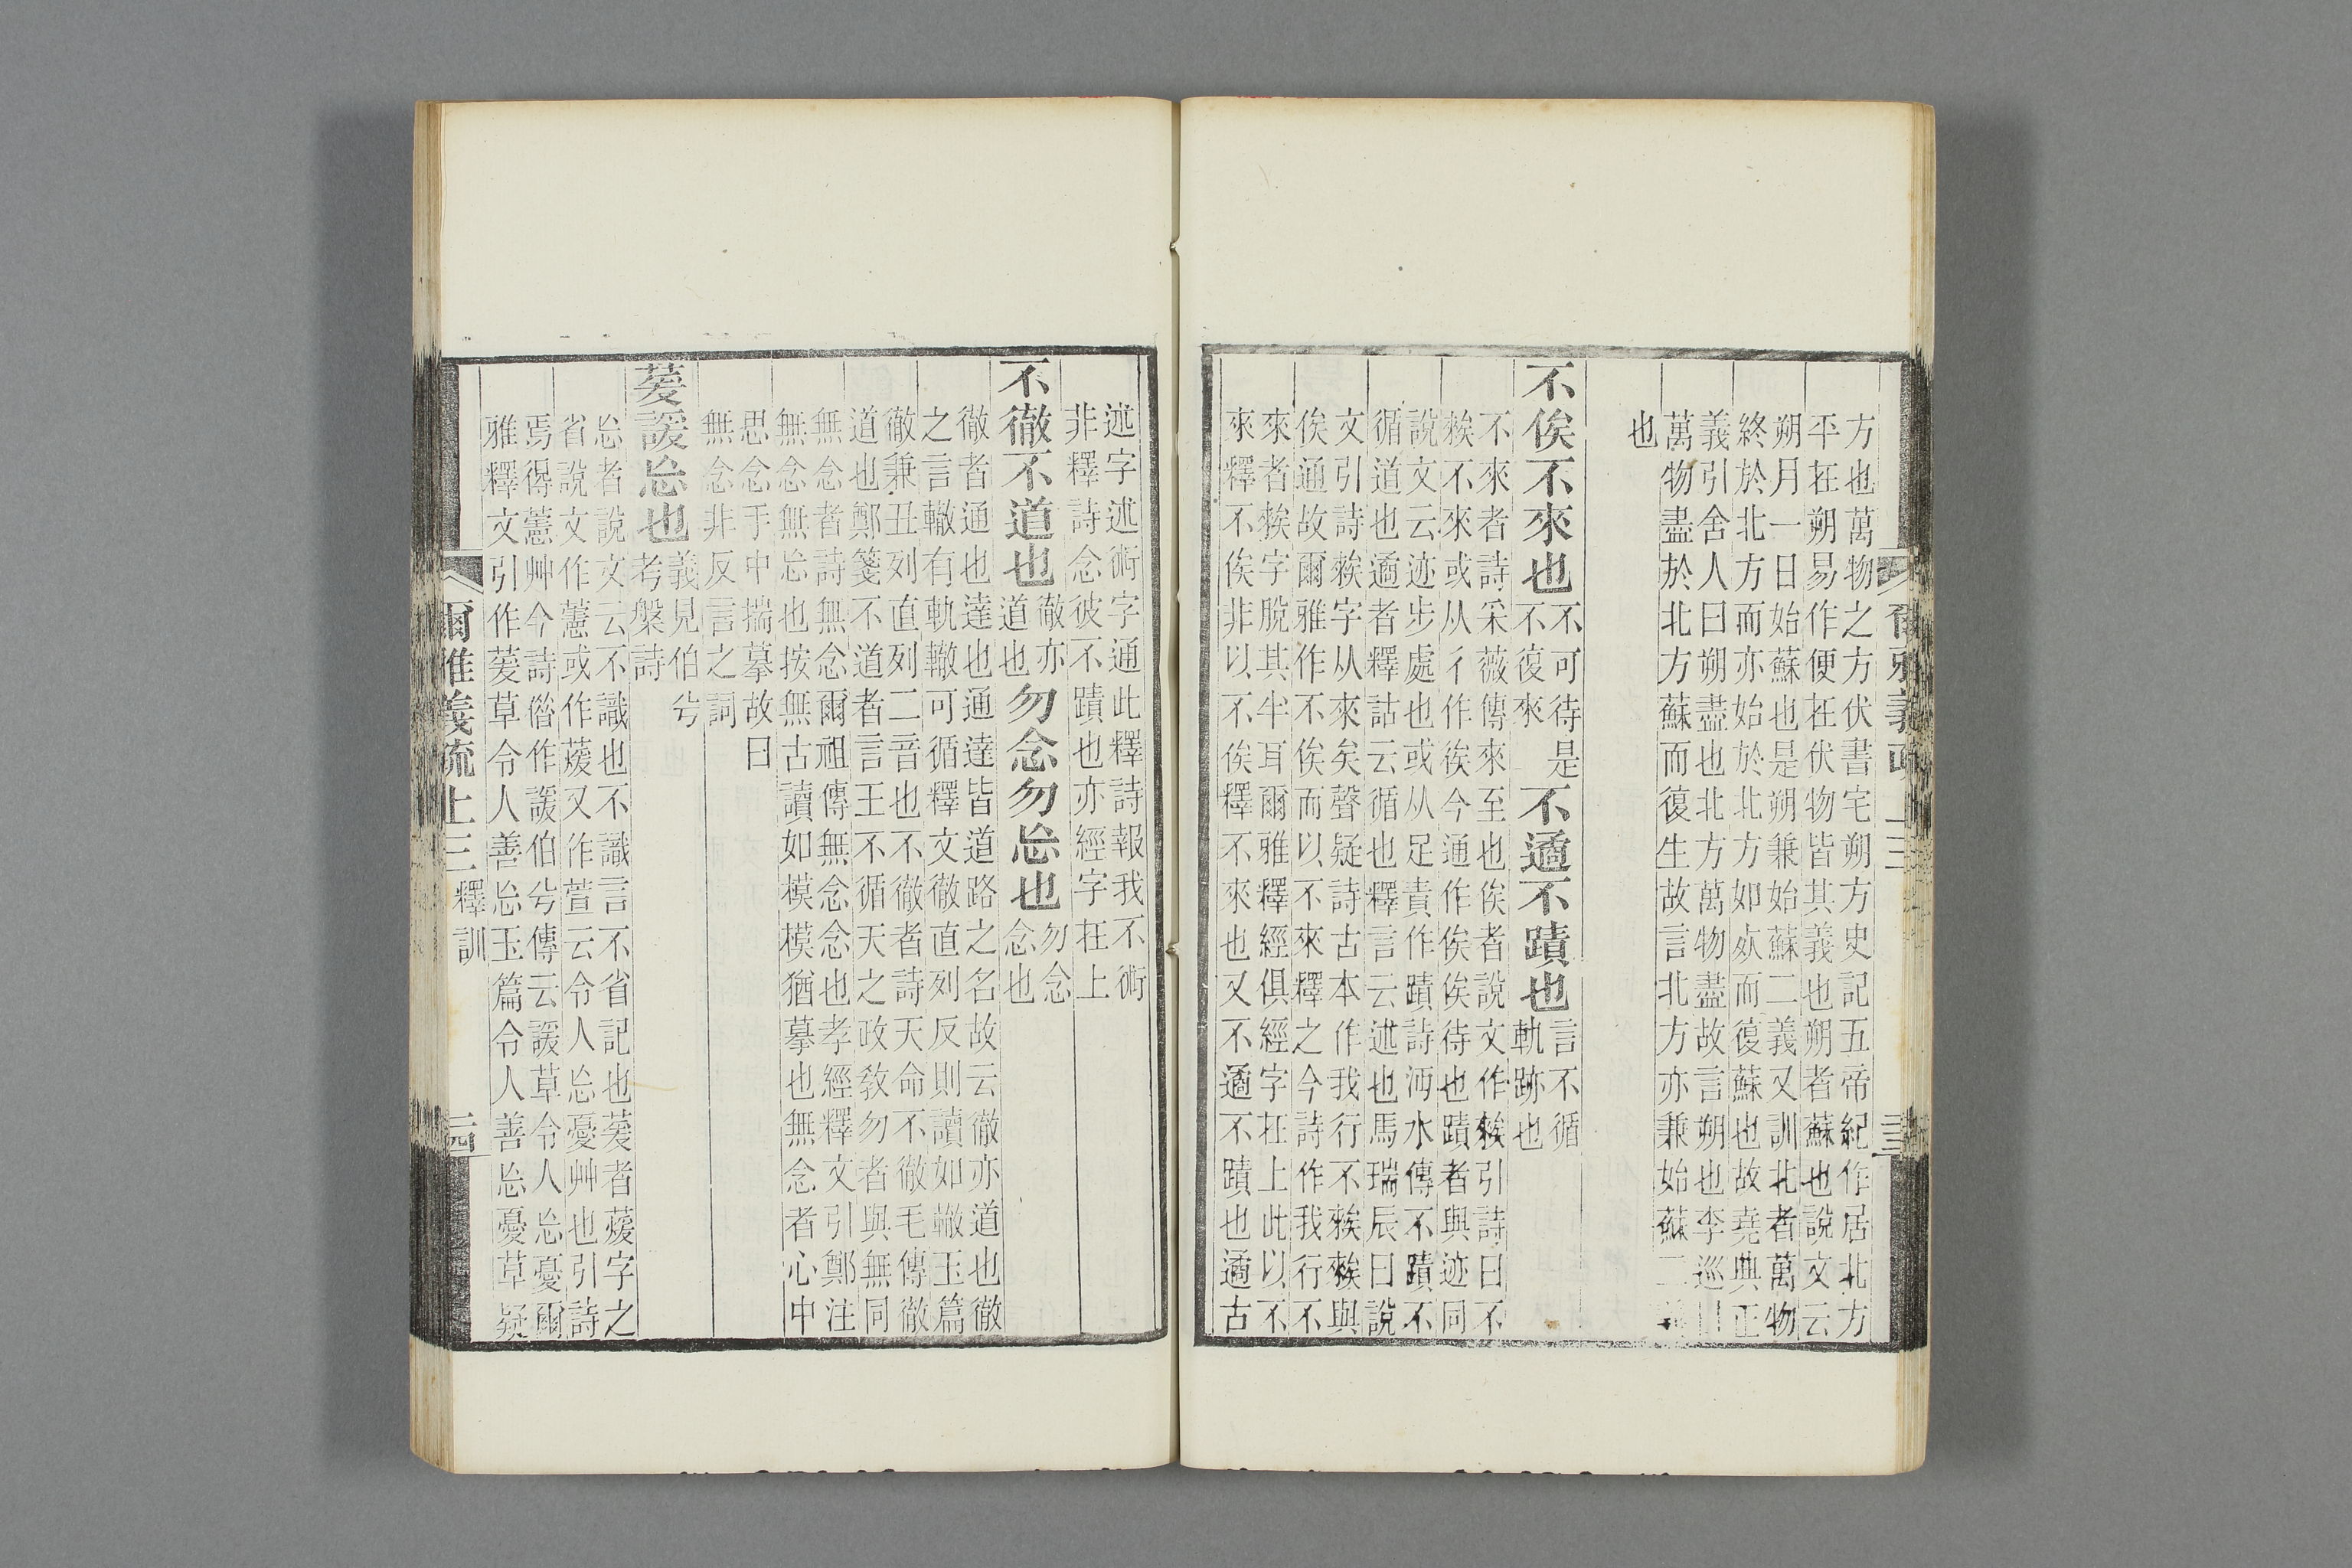 方也萬物之方伏書宅朔方史記五帝紀作居北方
平在朔易作便在伏物皆其義也朔者蘇也說文云
朔月一日始蘇也是朔兼始蘇二義又訓北者萬物
終於北方而亦始於北方如㱾而復蘇也故堯典正
義引舍人曰朔盡也北方萬物盡故言朔也李巡曰
萬物盡於北方蘇而復生故言北方亦兼始蘇二義
也
不俟不來也
不可待是
不復來
不遹不蹟也
言不循
軌跡也
不來者詩采薇傳來至也俟者說文作𥏳引詩曰不
𥏳不來或从彳作徯今通作俟俟待也蹟者與迹同
說文云迹步處也或从足責作蹟詩沔水傳不蹟不
循道也遹者釋詁云循也釋言云述也馬瑞辰曰說
文引詩𥏳字从來矣聲疑詩古本作我行不𥏳𥏳與
俟通故爾雅作不俟而以不來釋之今詩作我行不
來者𥏳字脫其半耳爾雅釋經俱經字在上此以不
來釋不俟非以不俟釋不來也又不遹不蹟也遹古
述字述術字通此釋詩報我不術
非釋詩念彼不蹟也亦經字在上
不徹不道也
徹亦
道也
勿念勿忘也
勿念
念也
徹者通也達也通達皆道路之名故云徹亦道也徹
之言轍有軌轍可循釋文徹直列反則讀如轍玉篇
徹兼丑列直列二音也不徹者詩天命不徹毛傳徹
道也鄭箋不道者言王不循天之政教勿者與無同
無念者詩無念爾祖傳無念念也孝經釋文引鄭注
無念無忘也按無古讀如模模猶摹也無念者心中
思念手中揣摹故曰
無念非反言之詞
萲諼忘也
義見伯兮
考槃詩
忘者說文云不識也不識言不省記也萲者藼字之
省說文作藼或作蕿又作萱云令人忘憂艸也引詩
焉得藼艸今詩偕作諼伯兮傳云諼草令人忘憂爾
雅釋文引作萲草令人善忘玉篇令人善忘憂草疑
爾雅義疏上三
釋訓
三四